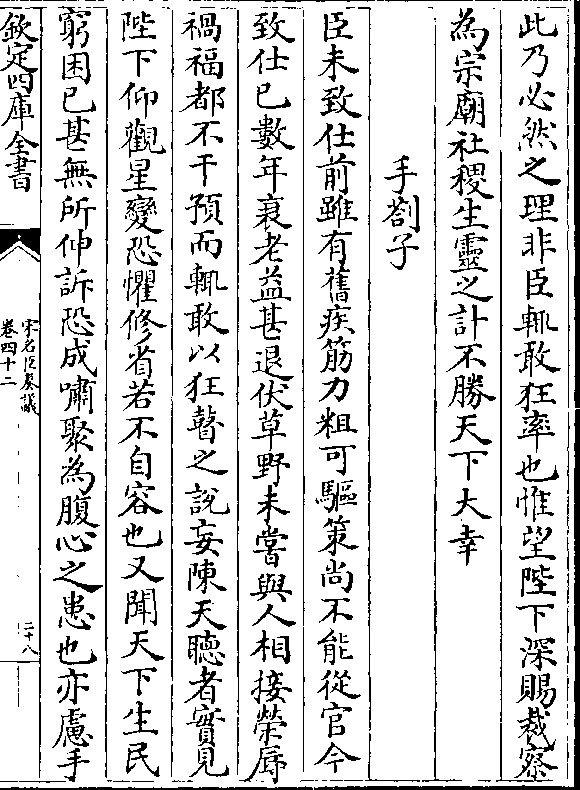 此乃必然之理非臣輒敢狂率也惟望陛下深賜裁察
為宗廟社稷生靈之計不勝天下大幸
手劄子
臣未致仕前雖有舊疾筋力粗可驅策尚不能從官今
致仕已數年衰老益甚退伏草野未嘗與人相接榮辱
禍福都不干預而輒敢以狂瞽之說妄陳天聽者實見
陛下仰觀星變恐懼修省若不自容也又聞天下生民
窮困已甚無所伸訴恐成嘯聚為腹心之患也亦慮手
欽定四庫全書
宋名臣奏議
卷四十二
二十八